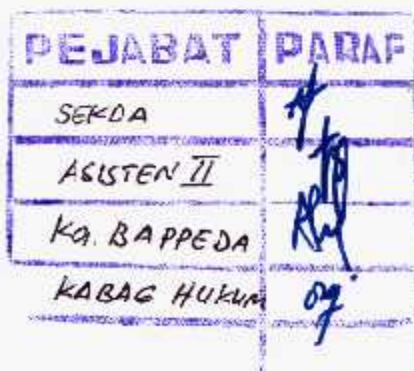 PEJABAT PARAF
SEKDA
ASISTEN II
Ka. BAPPEDA
KABAG HUKUM